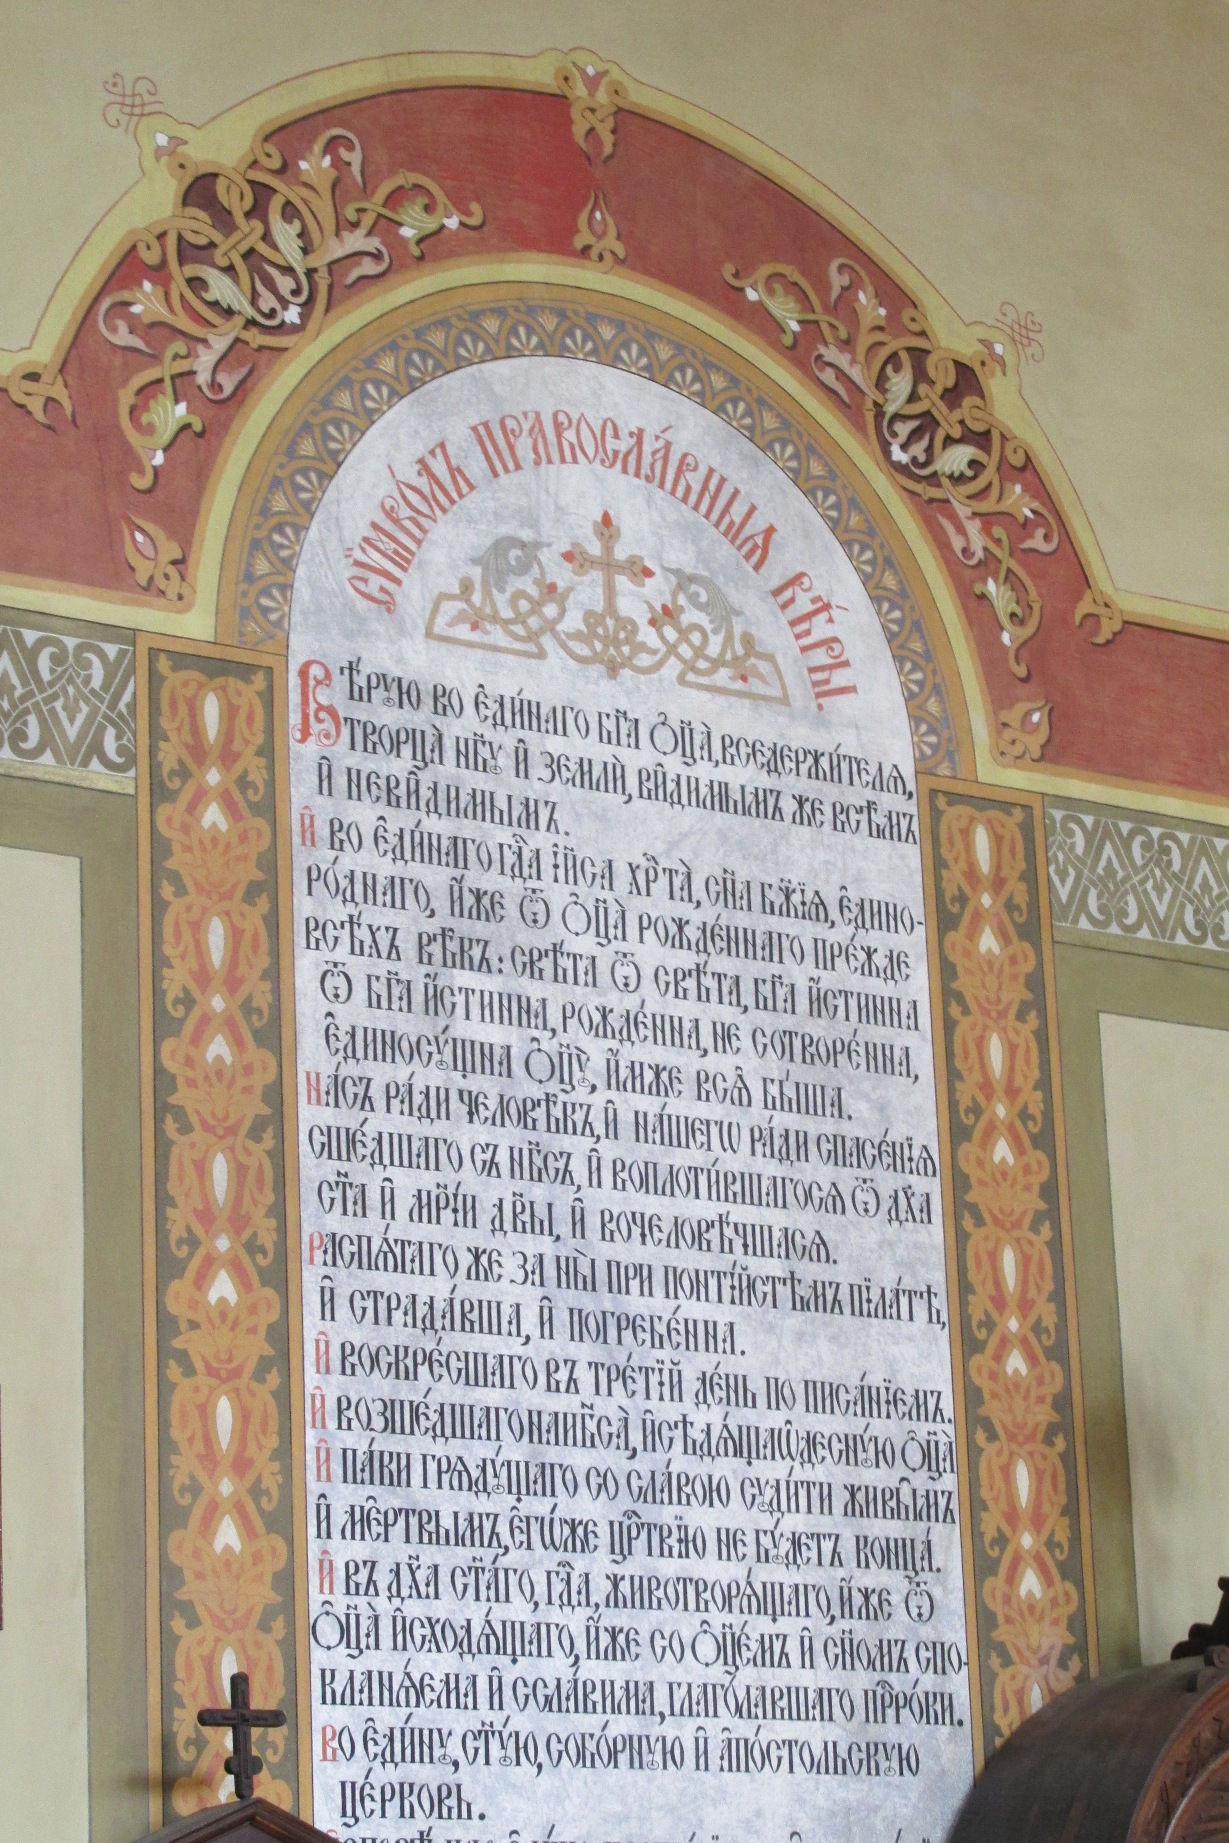 сѷ́мволъ правосла́вныѧ вѣ́ры
Вѣ́рую во є҆ди́наго бг҃а ѻ҆ц҃а̀, вседержи́телѧ,
творца̀ нб҃ꙋ и҆ землѝ, ви̑димымъ же всѣ̑мъ
и҆ неви̑димымъ.
И҆ во є҆ди́наго гдⷭ҇а і҆и҃са хрⷭ҇та̀, сн҃а бж҃їѧ, є҆дино-
ро́днаго, и҆́же ѿ ѻ҆ц҃а̀ рожде́ннаго пре́жде
всѣ́хъ вѣ̑къ: свѣ́та ѿ свѣ́та, бг҃а и҆́стинна
ѿ бг҃а и҆́стинна, рожде́нна, не сотворе́нна,
є҆диносꙋ́щна ѻ҆ц҃ꙋ̀, и҆́мже всѧ̑ бы́ша.
На́съ ра́ди человѣ̑къ, и҆ на́шегѡ ра́ди спасе́нїѧ
сше́дшаго съ нб҃съ, и҆ воплоти́вшагосѧ ѿ дх҃а
ст҃а и҆ мр҃і́и дв҃ы, и҆ вочеловѣ́чшасѧ.
Распѧ́таго же за ны̀ при понті́йстѣмъ пїла́тѣ,
и҆ страда́вша, и҆ погребе́нна.
И҆ воскре́сшаго въ тре́тїй де́нь по писа́нїемъ.
И҆ возше́дшаго на нб҃са̀, и҆ сѣдѧ́ща ѡ҆деснꙋ́ю ѻ҆ц҃а̀
И҆ па́ки грѧдꙋ́щаго со сла́вою сꙋди́ти живы̑мъ
и҆ ме̑ртвымъ, є҆гѡ́же црⷭ҇твїю не бꙋ́детъ конца́.
И҆ въ дх҃а ст҃а́го, гдⷭ҇а, животворѧ́щаго, и҆́же ѿ
ѻ҆ц҃а̀ и҆сходѧ́щаго, и҆́же со ѻ҆ц҃е́мъ и҆ сн҃омъ спо-
кланѧ́ема и҆ ссла́вима, глаго́лавшаго прⷪ҇ро́ки.
Во є҆ди́нꙋ, ст҃ꙋ́ю, собо́рнꙋю и҆ а҆по́стольскꙋю
це́рковь.